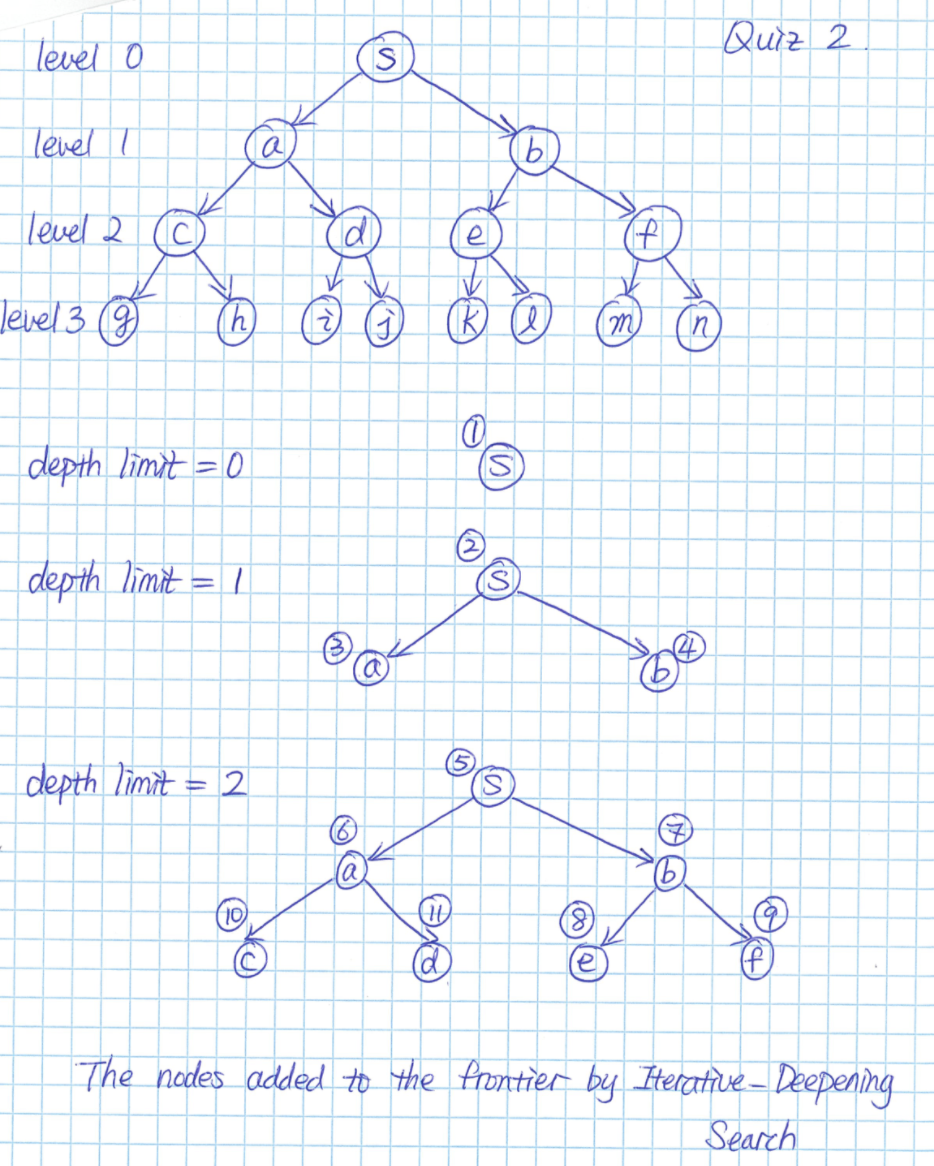 Quiz 2.
level 0 S
level 1 a b
level 2 c d e f
level 3 g h i j k l m n
①
depth limit = 0 S
②
depth limit = 1 S
③ a b ④
⑤
depth limit = 2 S
⑥ ⑦
a b
⑩ ⑪ ⑧ ⑨
c d e f
The nodes added to the frontier by Iterative-Deepening
Search